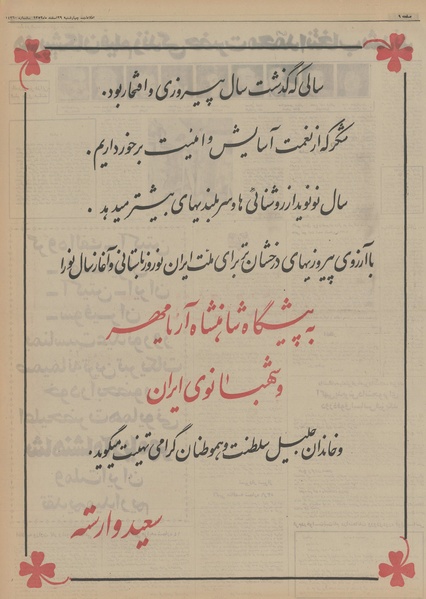 صفحه ۹
سالی که گذشت سال پیروزی و افتخار بود.
شکر که از نعمت آسایش و امنیت برخورداریم.
سال نو نوید از روشنائی ها و سربلندیهای بیشتر میدهد.
با آرزوی پیروزیهای درخشان تر برای ملت ایران نوروز باستانی و آغاز سال نو را
به پیشگاه شاهنشاه آریامهر
و شهبانوی ایران
و خاندان جلیل سلطنت و هموطنان گرامی تهنیت میگوید.
سعید وارسته